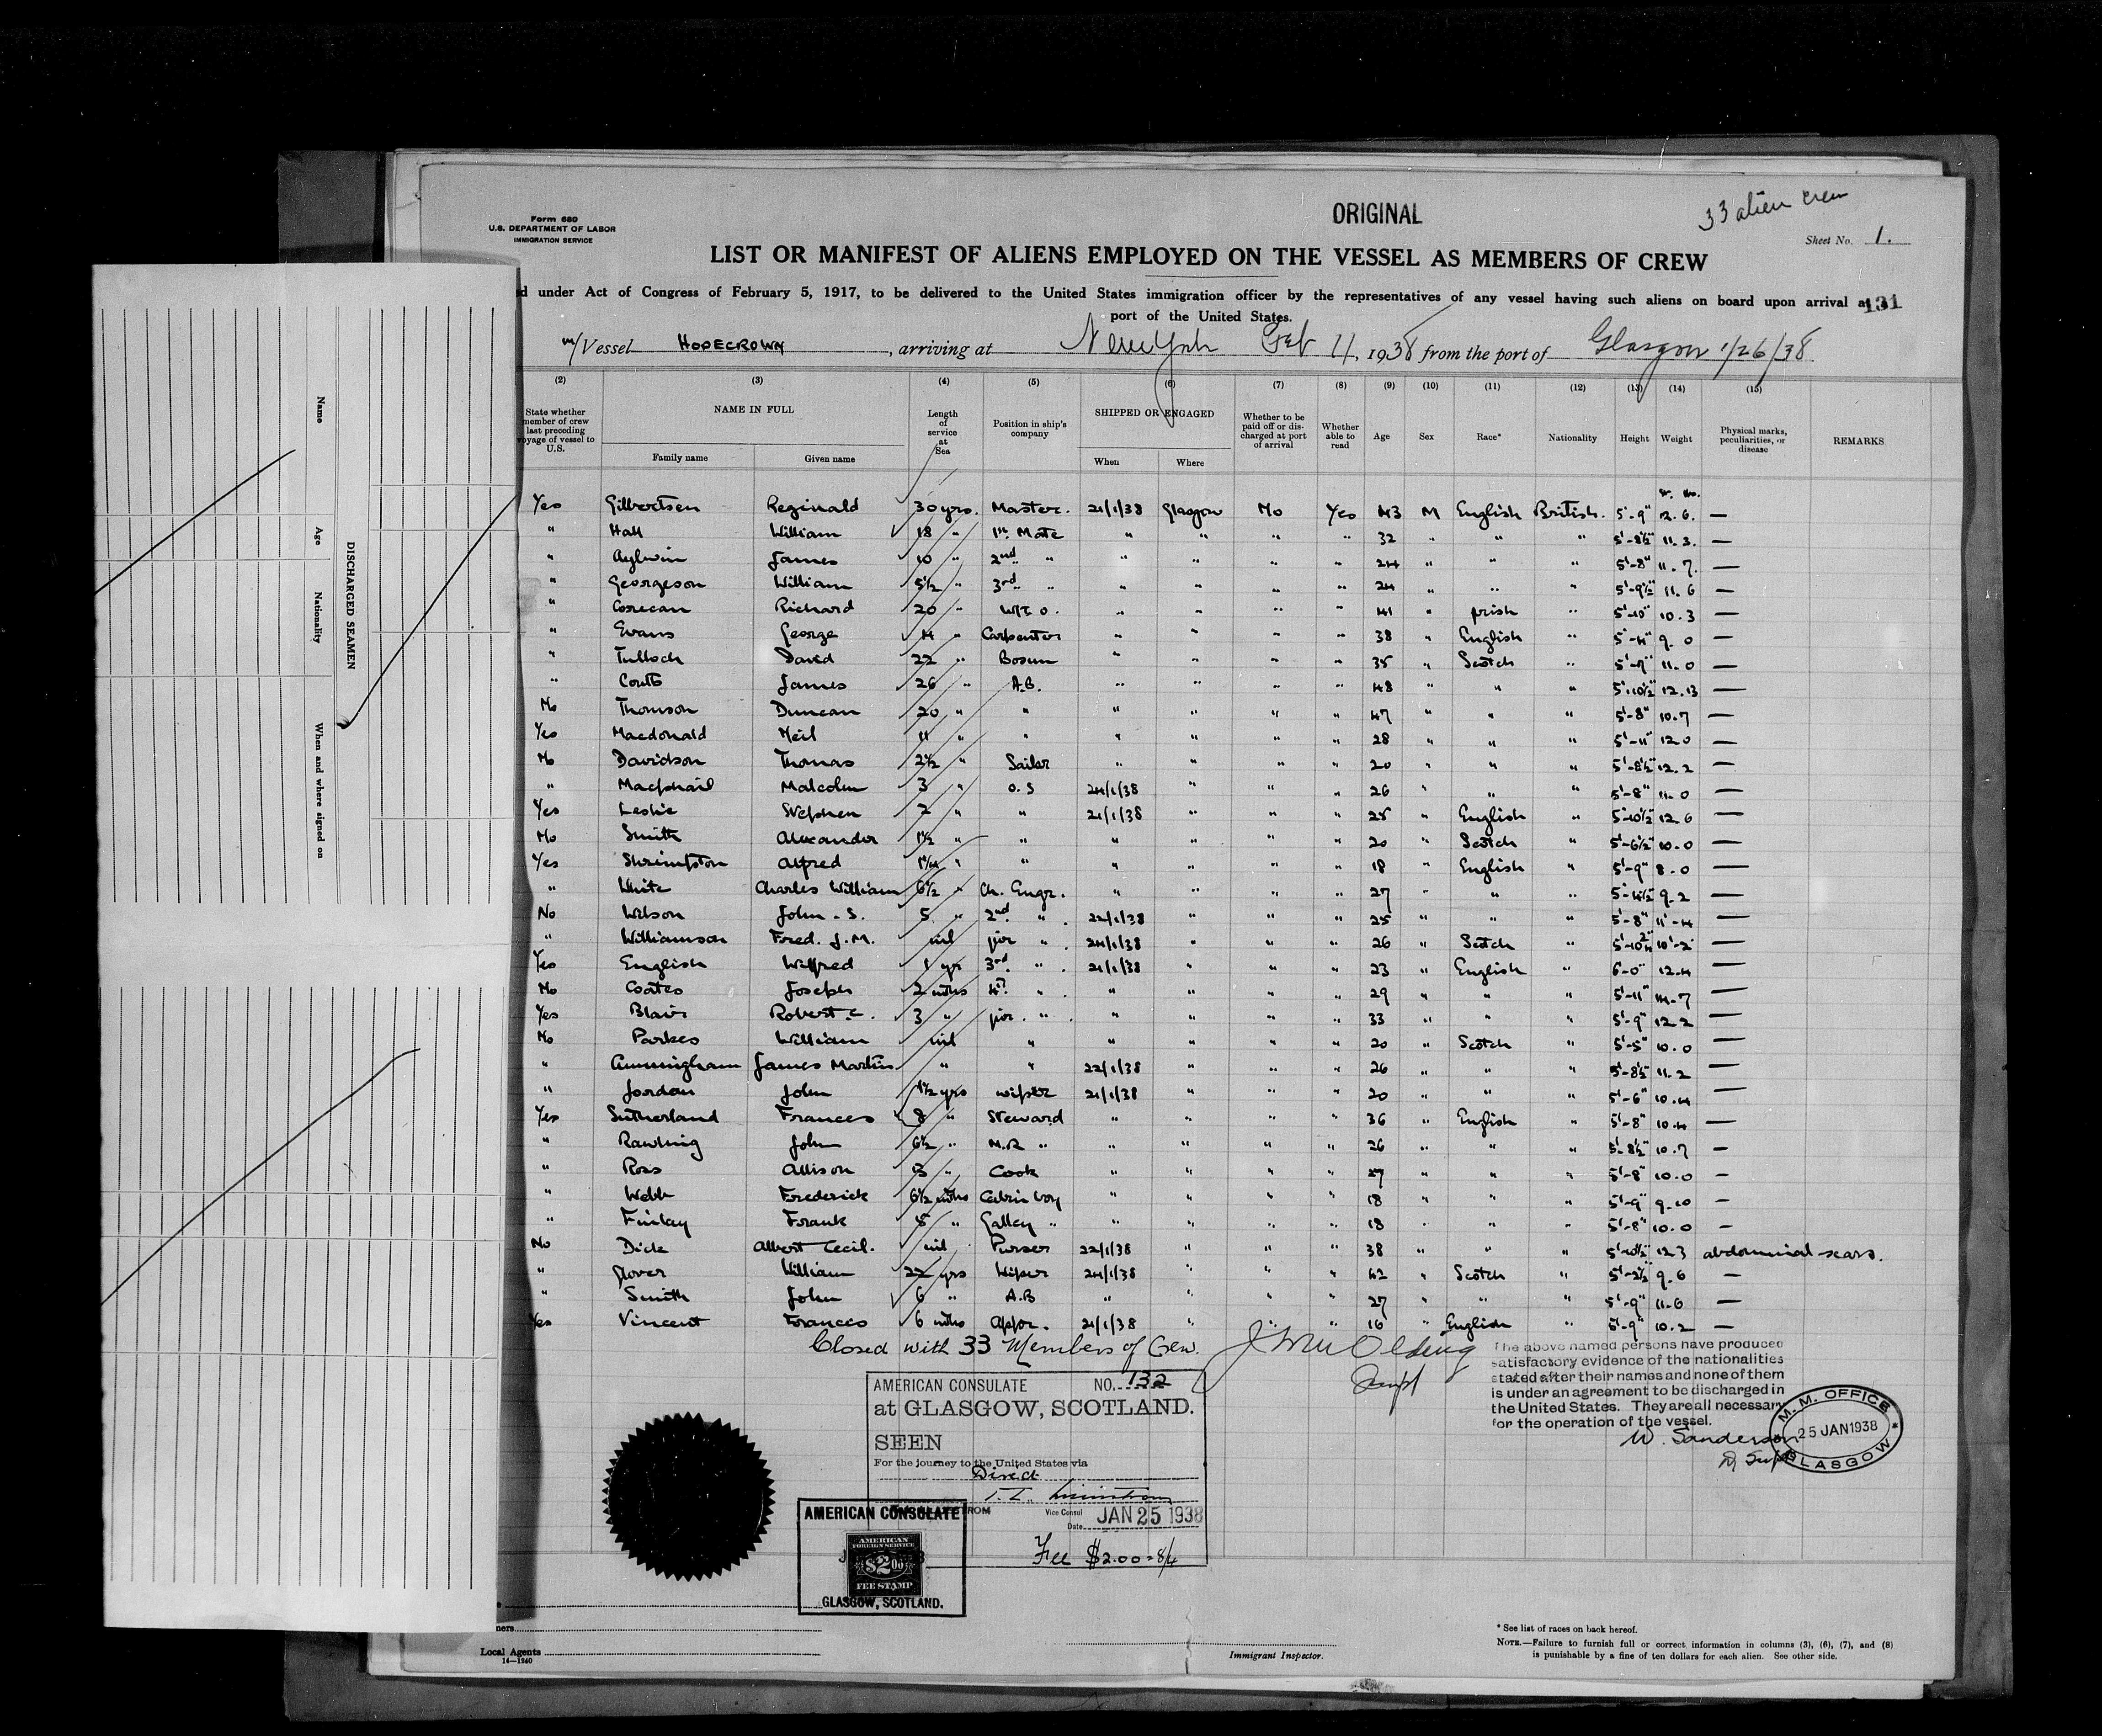 ORIGINAL
33 alien crew
Form 680
U.S. DEPARTMENT OF LABOR
IMMIGRATION SERVICE
Sheet No. 1.
LIST OR MANIFEST OF ALIENS EMPLOYED ON THE VESSEL AS MEMBERS OF CREW
d under Act of Congress of February 5, 1917, to be delivered to the United States immigration officer by the representatives of any vessel having such aliens on board upon arrival a
131
port of the United States.
m/Vessel HOPECROWN, arriving at New York Feb 11, 1938 from the port of Glasgow 1/26/38
(2) (3) (4) (5) (6) (7) (8) (9) (10) (11) (12) (13) (14) (15)
State whether member of crew last preceding voyage of vessel to U.S. NAME IN FULL Family name Given name Length of service at Sea Position in ship's company SHIPPED OR ENGAGED When Where Whether to be paid off or discharged at port of arrival Whether able to read Age Sex Race* Nationality Height Weight Physical marks, peculiarities, or disease REMARKS
Yes Gilbertsen Reginald 30 yrs. Master. 21/1/38 Glasgow No Yes 43 M English British. 5'-9" 12.6. —
" Hall William 18 " 1st Mate " " " " 32 " " " 5'-8½" 11.3. —
" Aylwin James 10 " 2nd " " " " " 24 " " " 5'-8" 11.7. —
" Georgeson William 5½ " 3rd " " " " " 24 " " " 5'-9½" 11.6 —
" Corecan Richard 20 " W/T O. " " " " 41 " Irish " 5'-10" 10.3 —
" Evans George 14 " Carpenter " " " " 38 " English " 5'-4" 9.0 —
" Tulloch David 22 " Bosun " " " " 35 " Scotch " 5'-7" 11.0 —
" Coutts James 26 " A.B. " " " " 48 " " " 5'-10½" 12.13 —
No Thomson Duncan 20 " " " " " " 47 " " " 5'-8" 10.7 —
Yes Macdonald Neil 11 " " " " " " 28 " " " 5'-11" 12.0 —
No Davidson Thomas 2½ " Sailor " " " " 20 " " " 5'-8½" 12.2 —
" Macphail Malcolm 3 " O.S 24/1/38 " " " 26 " " " 5'-8" 11.0 —
Yes Leslie Stephen 7 " " 21/1/38 " " " 25 " English " 5'-10½" 12.6 —
No Smith Alexander 1½ " " " " " " 20 " Scotch " 5'-6½" 10.0 —
Yes Shrimpton Alfred 1¼ " " " " " " 18 " English " 5'-9" 8.0 —
" White Charles William 6½ " Ch. Engr. " " " " 27 " " " 5'-4½" 9.2 —
No Wilson John. S. 5 " 2nd " . 22/1/38 " " " 25 " " " 5'-8" 11-4 —
" Williamson Fred. J.M. nil jnr " . 24/1/38 " " " 26 " Scotch " 5'-10¾" 10-2 —
Yes English Wilfred 1 yr 3rd " . 21/1/38 " " " 23 " English " 6-0" 12.4 —
No Coates Joseph 2 mths 4th " . " " " " 29 " " " 5'-11" 14.7 —
Yes Blair Robert C. 3 " jnr. " . " " " " 33 " " " 5'-9" 12.2 —
No Parkes William nil " " " " " 20 " Scotch " 5'-5" 10.0 —
" Cunningham James Martin " " 22/1/38 " " " 26 " " " 5'-8½" 11.2 —
" Jordan John 1½ yrs wiper 21/1/38 " " " 20 " " " 5'-6" 10.4 —
Yes Sutherland Frances 8 " Steward " " " " 36 " English " 5'-8" 10.4 —
" Rawling John 6½ " M.R " " " " " 26 " " " 5'-8½" 10.7 —
" Ross Allison 13 " Cook " " " " 27 " " " 5'-8" 10.0 —
" Webb Frederick 6½ mths Cabin boy " " " " 18 " " " 5'-9" 9.10 —
" Finlay Frank 5 " Galley " " " " " 18 " " " 5'-8" 10.0 —
No Dick Albert Cecil. nil Purser 22/1/38 " " " 38 " " " 5'-10½" 12.3 abdominal scars.
" Glover William 22 yrs Wiper 24/1/38 " " " 42 " Scotch " 5'-2½" 9.6 —
" Smith John 6 " A.B " " " " 27 " " " 5'-9" 11.6 —
Yes Vincent Frances 6 mths Appr. 21/1/38 " " " 16 " English " 5'-9" 10.2 —
Closed with 33 Members of Crew.
Supt
The above named persons have produced
satisfactory evidence of the nationalities
stated after their names and none of them
is under an agreement to be discharged in
the United States. They are all necessary
for the operation of the vessel.
W. Sanderson
D/ Supt
M.M. OFFICE
25 JAN 1938
GLASGOW
AMERICAN CONSULATE NO. 132
at GLASGOW, SCOTLAND.
SEEN
For the journey to the United States via
Direct
Vice Consul
Date JAN 25 1938
Fee $2.00 = 8/4
AMERICAN CONSULATE
AMERICAN
FOREIGN SERVICE
$2.00
FEE STAMP
GLASGOW, SCOTLAND.
Local Agents
14—1240
Immigrant Inspector.
* See list of races on back hereof.
NOTE.—Failure to furnish full or correct information in columns (3), (6), (7), and (8)
is punishable by a fine of ten dollars for each alien. See other side.
DISCHARGED SEAMEN
Name Age Nationality When and where signed on